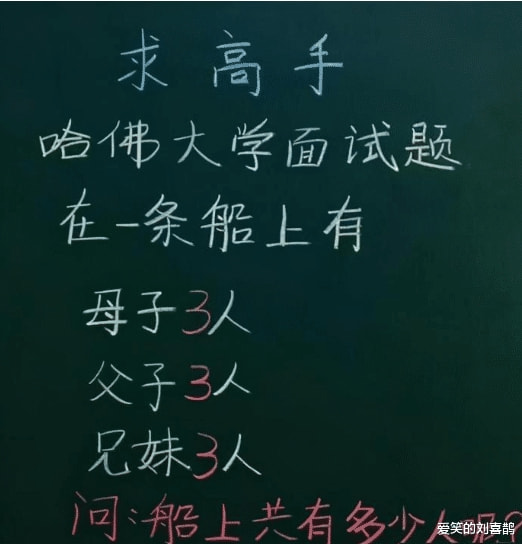 求高手
哈佛大学面试题
在一条船上有
母子3人
父子3人
兄妹3人
问:船上共有多少人呢?
爱笑的刘喜鹊